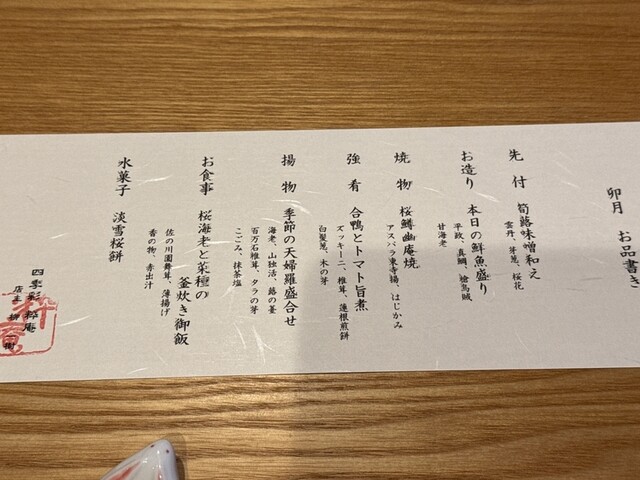 卯月 お品書き
先付 筍蕗味噌和え
雲丹、芽葱、桜花
お造り 本日の鮮魚盛り
平政、真鯛、槍烏賊
甘海老
焼物 桜鱒幽庵焼
アスパラ東寺揚、はじかみ
強肴 合鴨とトマト旨煮
ズッキーニ、椎茸、蓮根煎餅
白髪葱、木の芽
揚物 季節の天婦羅盛合せ
海老、山独活、蕗の薹
百万石椎茸、タラの芽
こごみ、抹茶塩
お食事 桜海老と菜種の
釜炊き御飯
佐の川園舞茸、薄揚げ
香の物、赤出汁
水菓子 淡雪桜餅
四季彩 粋庵
店主